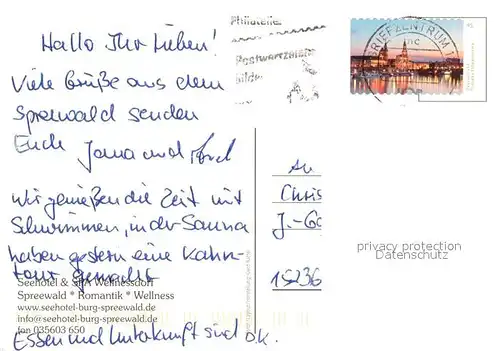 Hallo Ihr Lieben!
Viele Grüße aus dem
Spreewald senden
Euch Jana und
Wir genießen die Zeit mit
Schwimmen, in der Sauna
haben gestern eine Kahn-
tour gemacht
Seehotel & SPA Wellnessdorf
Spreewald * Romantik * Wellness
www.seehotel-burg-spreewald.de
info@seehotel-burg-spreewald.de
fon 035603 650
Essen und Unterkunft sind o.k.
Philatelie.
Postwertzeichen
Bilder
BRIEFZENTRUM 1
An
Chris
J.-Go
15236
privacy protection
Datenschutz